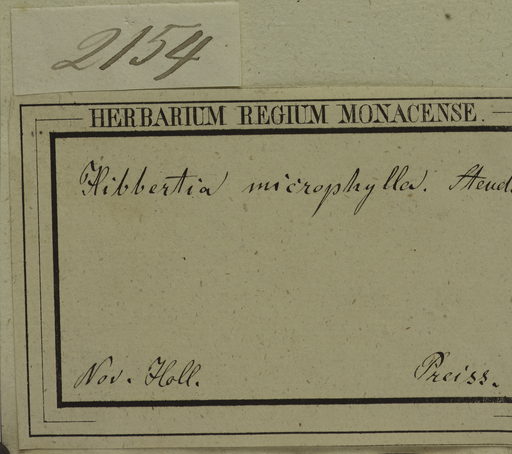 2154
HERBARIUM REGIUM MONACENSE.
Hibbertia microphylla. Steud.
Nov. Holl.
Preiss.